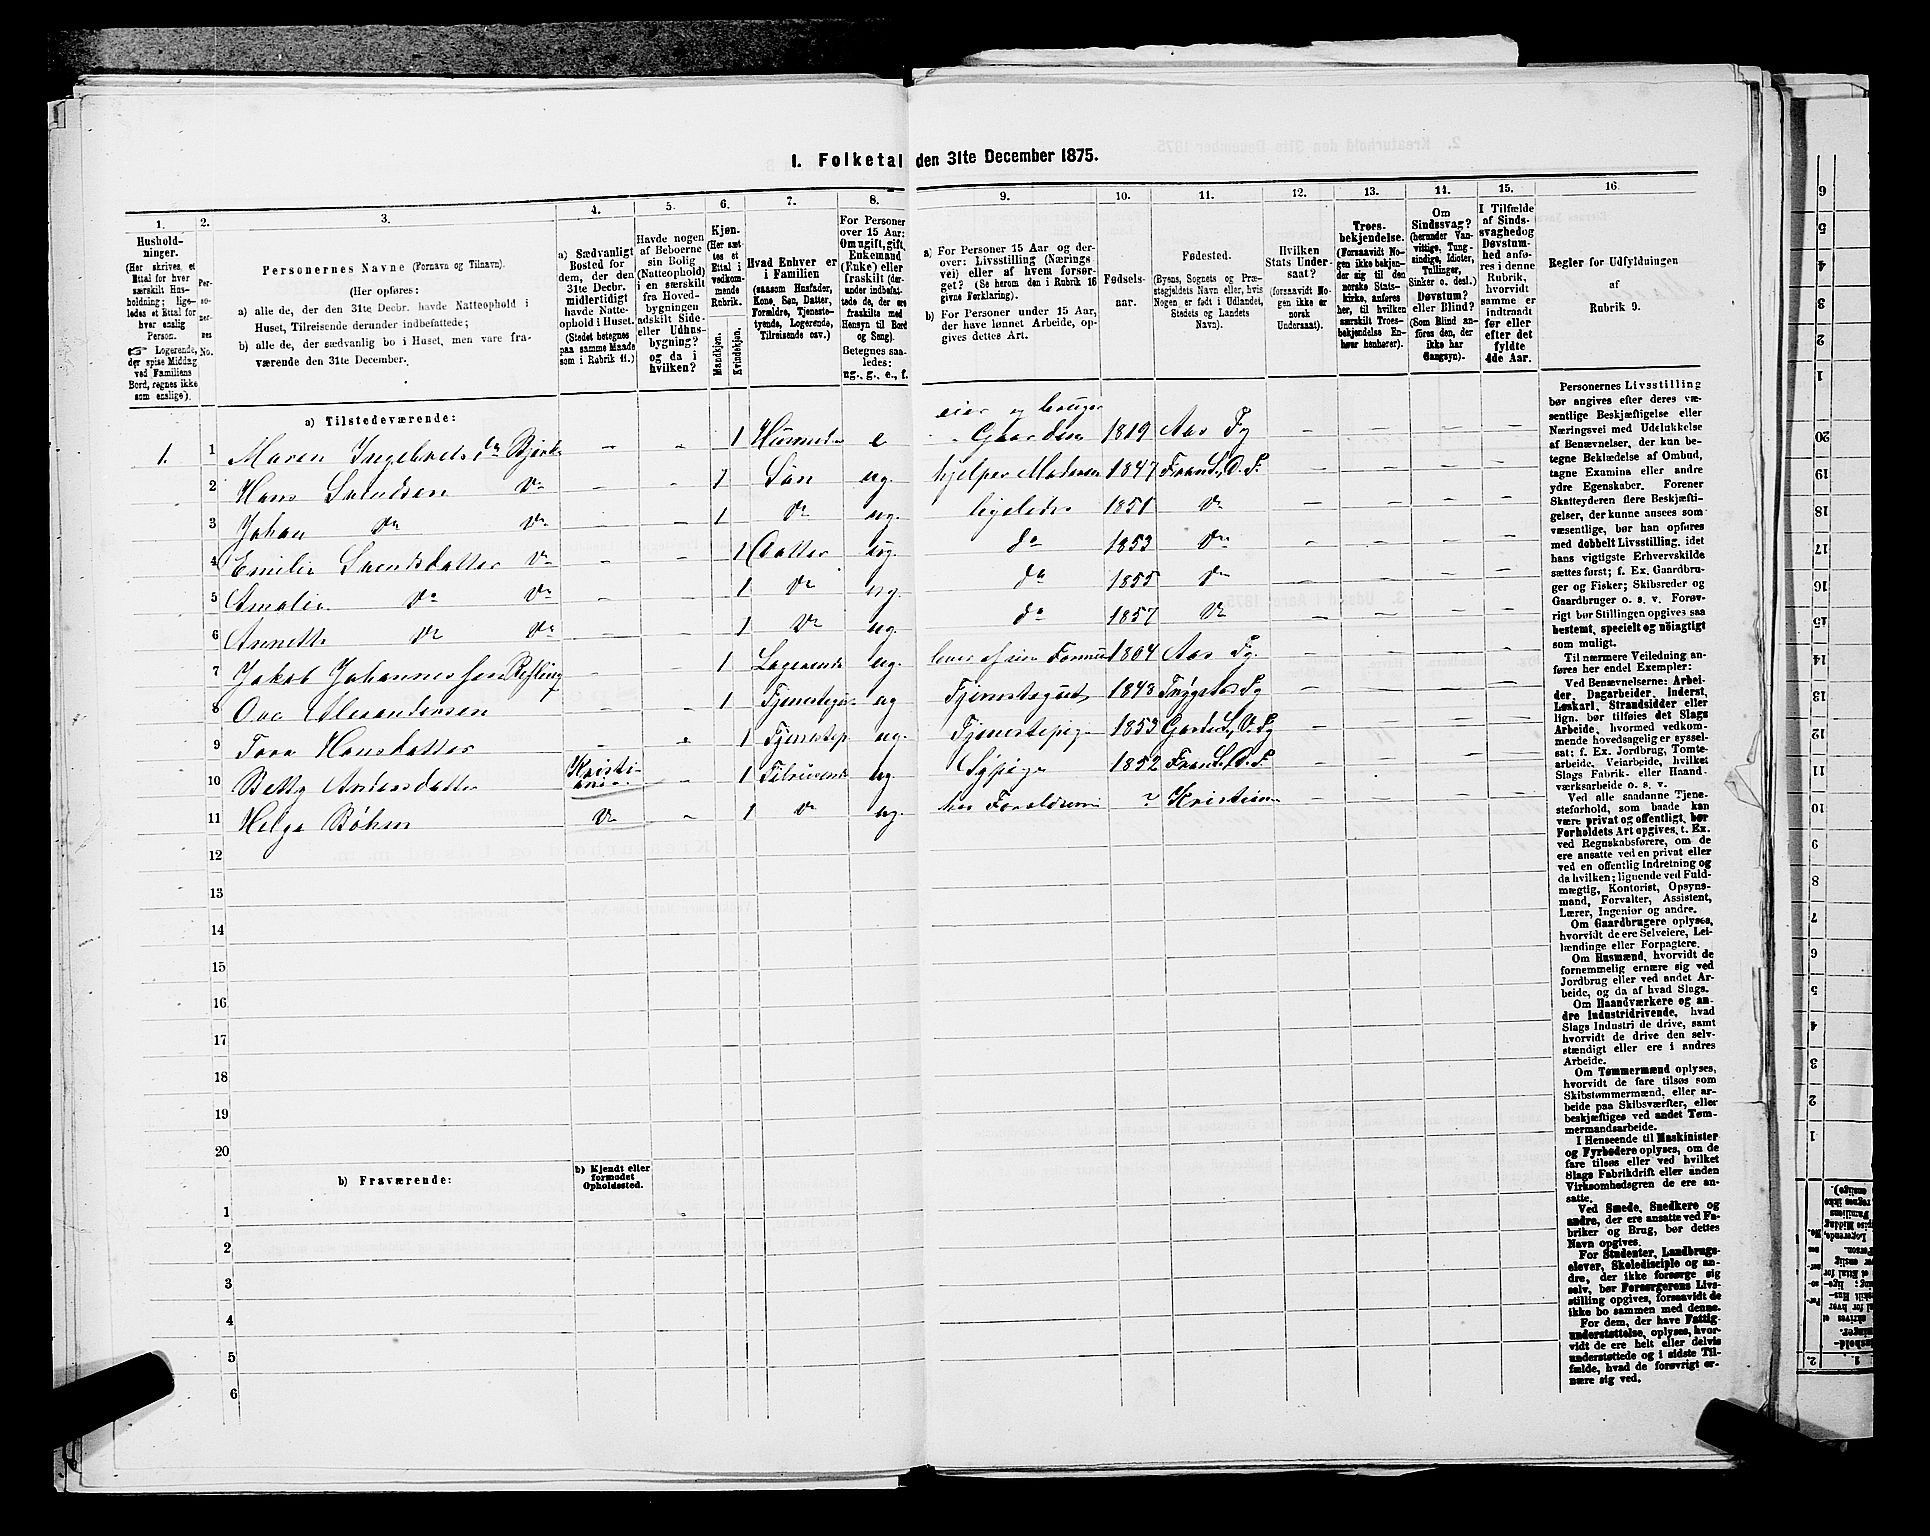 1. Folketal den 31te December 1875.
1. 2. 3. 4. 5. 6. 7. 8. 9. 10. 11. 12. 13. 14. 15. 16.
Hushold-
ninger.
(Her skrives et
Ettal for hver
særskilt Hus-
holdning; lige-
ledes et Ettal for
hver enslig
Person.
☞ Logerende,
der spise Middag
ved Familiens
Bord, regnes ikke
som enslige).
Per-
so-
ner-
nes
No.
Personernes Navne (Fornavn og Tilnavn).
(Her opføres:
a) alle de, der den 31te Decbr. havde Natteophold i
Huset, Tilreisende derunder indbefattede;
b) alle de, der sædvanlig bo i Huset, men vare fra-
værende den 31te December.
a) Sædvanligt
Bosted for
dem, der den
31te Decbr.
midlertidigt
havde Natte-
ophold i Huset.
(Stedet betegnes
paa samme Maade
som i Rubrik 11.)
Havde nogen
af Beboerne
sin Bolig
(Natteophold)
i en særskilt
fra Hoved-
bygningen
adskilt Side-
eller Udhus-
bygning?
og da i
hvilken?
Kjøn.
(Her sæt-
tes et
Ettal i
vedkom-
mende
Rubrik.
Mandkjøn.
Kvindekjøn.
Hvad Enhver er
i Familien
(saasom Husfader,
Kone, Søn, Datter,
Forældre, Tjeneste-
tyende, Logerende,
Tilreisende osv.)
For Personer
over 15 Aar:
Om ugift, gift,
Enkemand
(Enke) eller
fraskilt (der-
under indbefat-
tede de, der ere
fraskilte med
Hensyn til Bord
og Seng).
Betegnes saa-
ledes:
ug., g., e., f.
a) For Personer 15 Aar og der-
over: Livsstilling (Nærings-
vei) eller af hvem forsør-
get? (Se herom den i Rubrik 16
givne Forklaring).
b) For Personer under 15 Aar,
der have lønnet Arbeide, op-
gives dettes Art.
Fødsels-
aar.
Fødested.
(Byens, Sognets og Præ-
stegjeldets Navn eller, hvis
Nogen er født i Udlandet,
Stedets og Landets
Navn).
Hvilken
Stats Under-
saat?
(forsaavidt No-
gen ikke er
norsk
Undersaat).
Troes-
bekjendelse.
(Forsaavidt No-
gen ikke bekjen-
der sig til den
norske Stats-
kirke, anføres
her, til hvilken
særskilt Troes-
bekjendelse En-
hver henhører).
Om
Sindssvag?
(herunder Van-
vittige, Tung-
sindige, Idioter,
Tullinger,
Sinker o. desl.)
Døvstum?
eller Blind?
(Som Blind an-
føres den, der
ikke har
Gangsyn).
I Tilfælde
af Sinds-
svaghed og
Døvstum-
hed anfø-
res i denne
Rubrik,
hvorvidt
samme er
indtraadt
før eller
efter det
fyldte
4de Aar.
Regler for Udfyldningen
af
Rubrik 9.
a) Tilstedeværende:
eier og bruger
1. 1 Maren Ingebretsd. Bjerke – – 1 Husmoder e Gaarden 1819 Aas Pg
2 Hans Svendsen Do – – 1 Søn ug. hjelper Moderen 1847 – – – –
3 Johan do Do – – 1 do ug. ligeledes 1851 do
4 Emilie Svendsdatter Do – – 1 Datter ug. do 1853 do – – – –
5 Amalie do do – – 1 do ug. do 1855 do – – – –
6 Annette do do – – 1 do ug. do 1857 do – – – –
7 Jakob Johannessen – – 1 Logerende ug. lever af sin Formue 1804 Aas Pg. – – – –
8 Ove Alexandersen – – 1 ug Tjenestegut 1843 Pg – – – –
9 Tora Hansdatter – – 1 Tjenestep. ug. Tjenestepige 1853 – – – –
10 Betty Andersdatter Kristi-
ania – 1 Tilreisende ug Sypige 1852 – – – –
11 Helga Böhm do – 1 do ug. hos Forældrene ? Kristiania – – – –
12
13
14
15
16
17
18
19
20
b) Fraværende:
b) Kjendt eller
formodet
Opholdssted.
1
2
3
4
5
6
Personernes Livsstilling
bør angives efter deres væ-
sentlige Beskjæftigelse eller
Næringsvei med Udelukkelse
af Benævnelser, der kun be-
tegne Beklædelse af Ombud,
tagne Examina eller andre
ydre Egenskaber. Forener
Skatteyderen flere Beskjæfti-
gelser, der kunne ansees som
væsentlige, bør han opføres
med dobbelt Livsstilling, idet
hans vigtigste Erhvervskilde
sættes først; f. Ex. Gaardbru-
ger og Fisker; Skibsreder og
Gaardbruger o. s. v. Forøv-
rigt bør Stillingen opgives saa
bestemt, specielt og nöiagtigt
som muligt.
Til nærmere Veiledning an-
føres her endel Exempler:
Ved Benævnelserne: Arbei-
der, Dagarbeider, Inderst,
Løskarl, Strandsidder eller
lign. bør tilføies det Slags
Arbeide, hvormed vedkom-
mende hovedsagelig er syssel-
sat; f. Ex. Jordbrug, Tomte-
arbeide, Veiarbeide, hvilket
Slags Fabrik- eller Haand-
værksarbeide o. s. v.
Ved alle saadanne Tjene-
steforhold, som baade kan
være privat og offentligt, bør
Forholdets Art opgives, t. Ex.
ved Regnskabsførere, om de
ere ansatte ved en privat eller
ved en offentlig Indretning og
da hvilken; lignende ved Fuld-
mægtig, Kontorist, Opsyns-
mand, Forvalter, Assistent,
Lærer, Ingeniør og andre.
Om Gaardbrugere oplyses,
hvorvidt de ere Selveiere, Lei-
lændinge eller Forpagtere.
Om Husmænd, hvorvidt de
fornemmelig ernære sig ved
Jordbrug eller ved andet Ar-
beide, og da af hvad Slags.
Om Haandværkere og an-
dre Industridrivende, hvad
Slags Industri de drive, samt
hvorvidt de drive den selv-
stændigt eller ere i andres
Arbeide.
Om Tømmermænd oplyses,
hvorvidt de fare tilsøs som
Skibstømmermænd, eller ar-
beide paa Skibsværfter, eller
beskjæftiges ved andet Tøm-
mermandsarbeide.
I Henseende til Maskinister
og Fyrbødere oplyses, om de
fare tilsøs eller ved hvilket
Slags Fabrikdrift eller anden
Virksomhedsgren de ere an-
satte.
Ved Smede, Snedkere og
andre, der ere ansatte ved Fa-
briker og Brug, bør dettes
Navn opgives.
For Studenter, Landbrugs-
elever, Skoledisciple og an-
dre, der ikke forsørge sig
selv, bør Forsørgerens Livs-
stilling opgives, forsaavidt de
ikke bo sammen med denne.
For dem, der have Fattig-
understøttelse, oplyses, hvor-
vidt de ere helt eller delvis
understøttede og i sidste Til-
fælde, hvad de forøvrigt er-
nære sig ved.